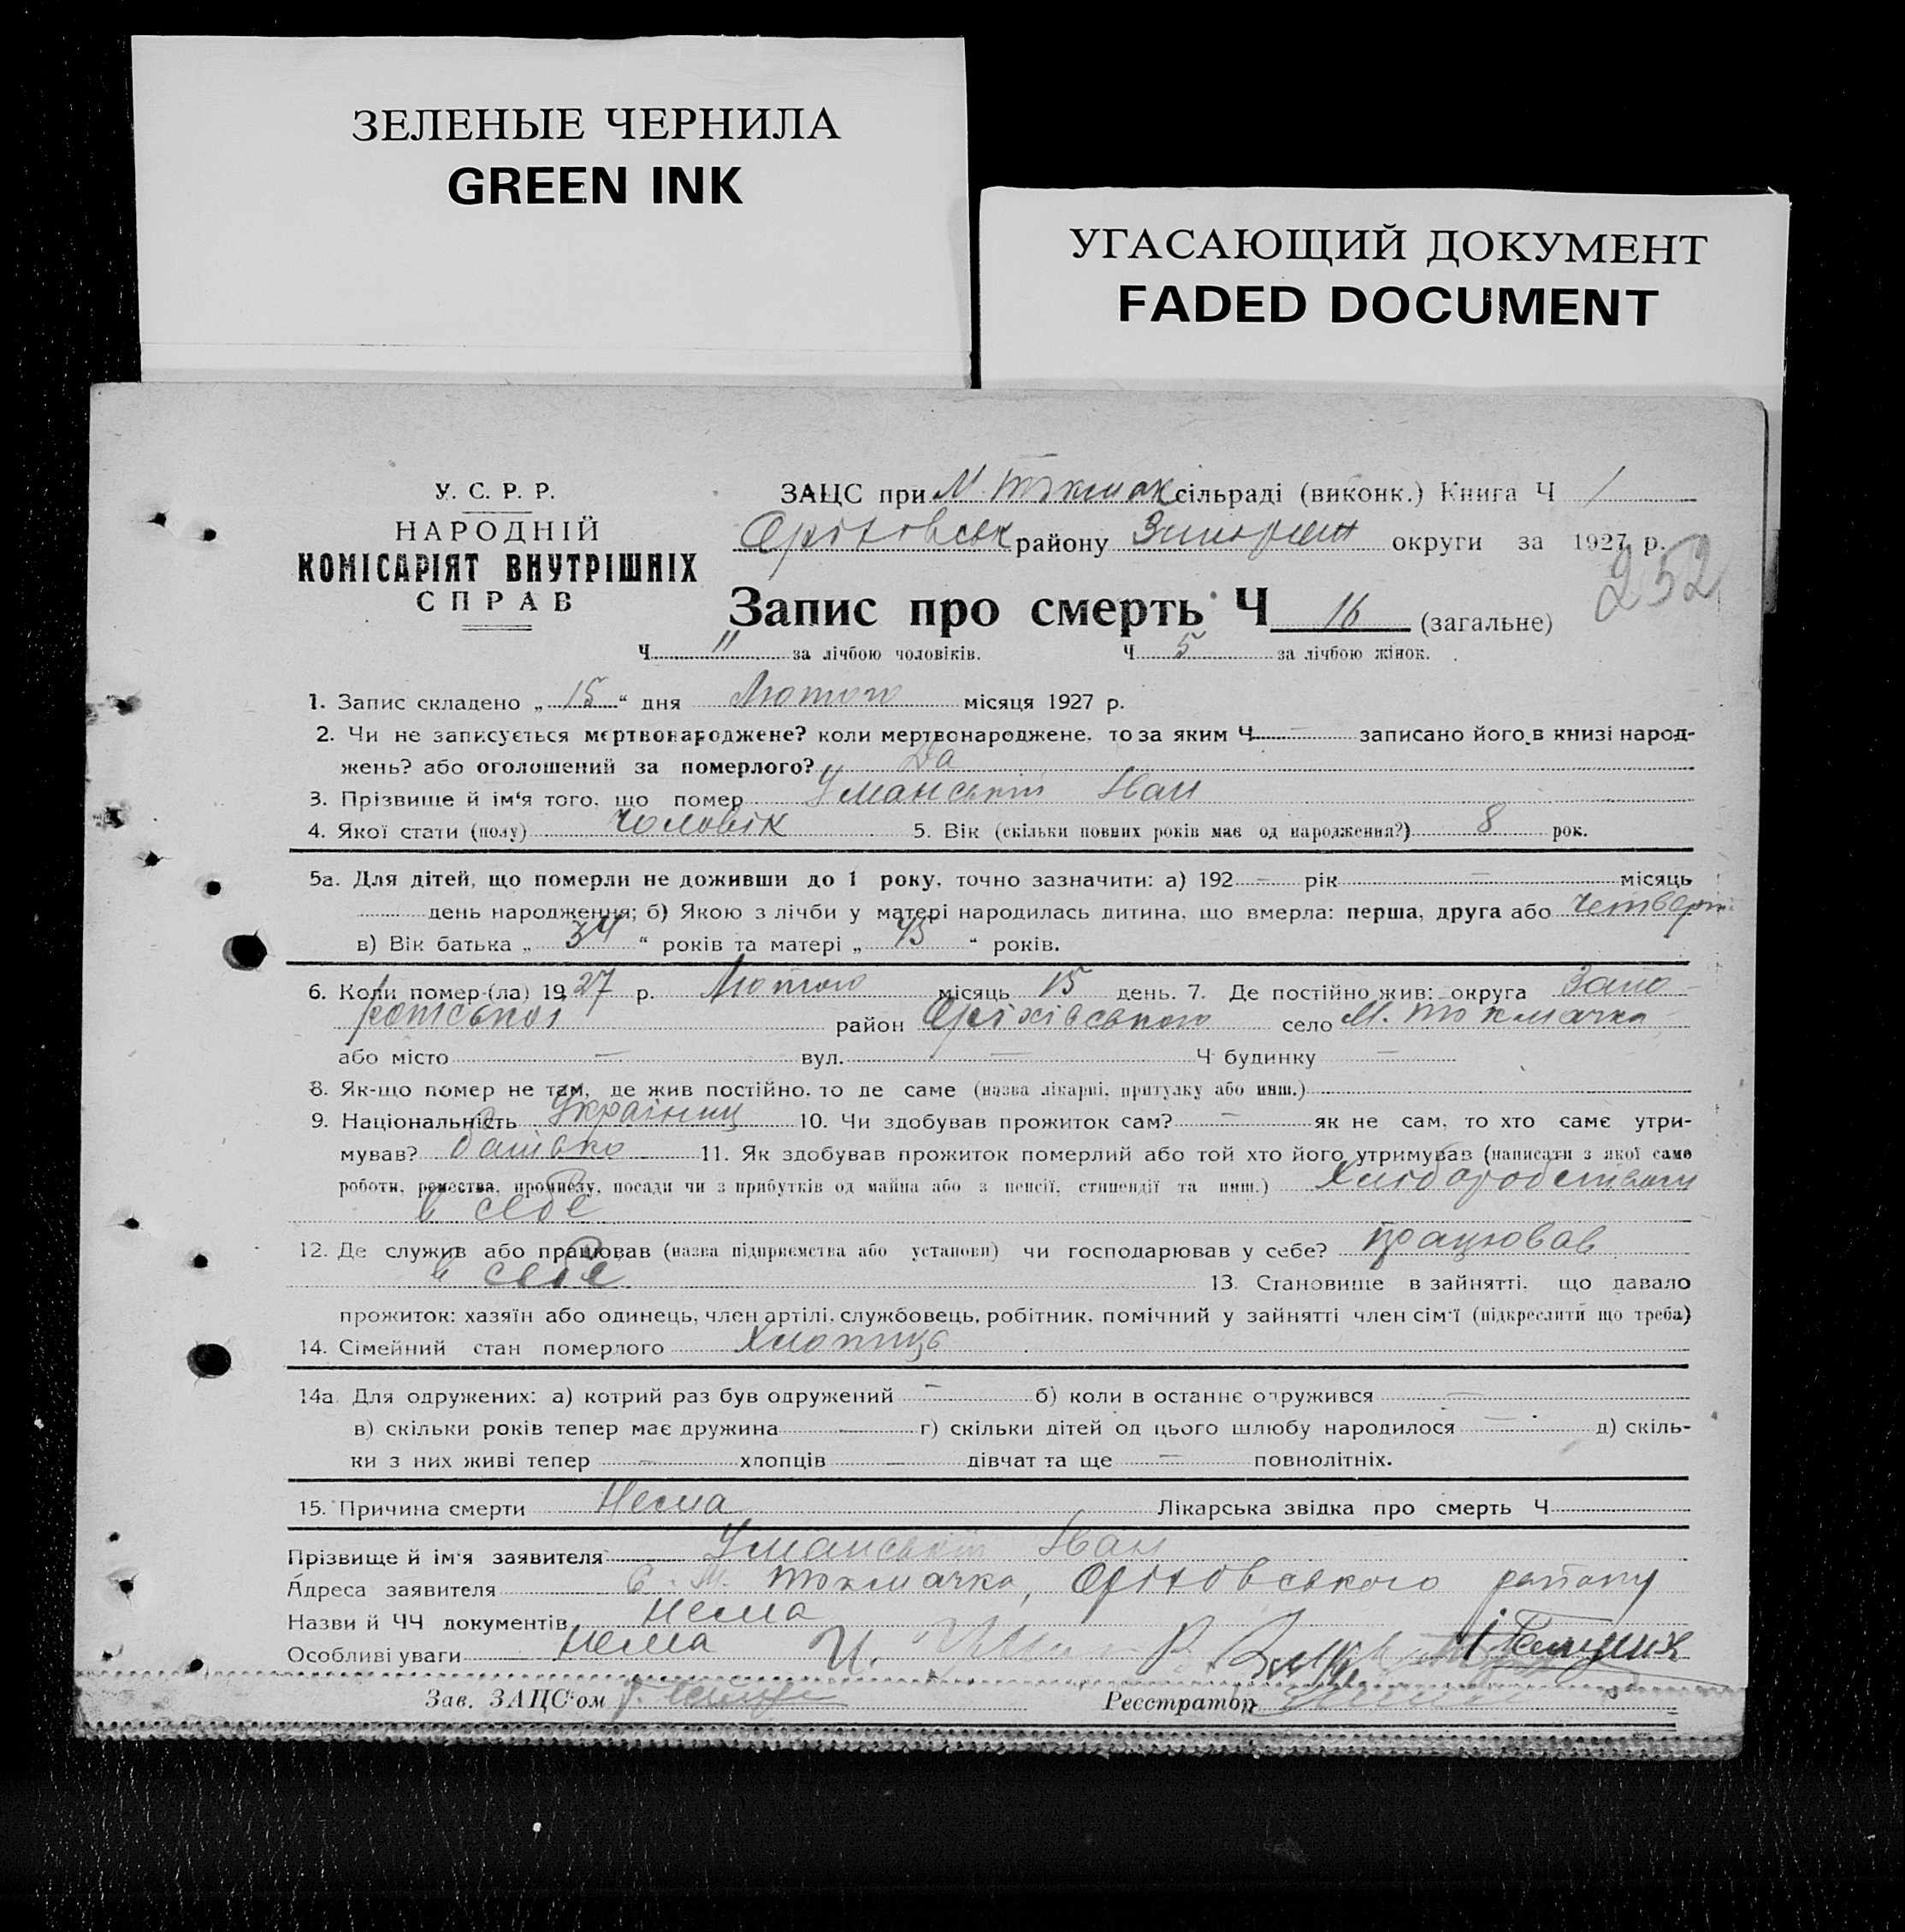 ЗЕЛЕНЫЕ ЧЕРНИЛА
GREEN INK
УГАСАЮЩИЙ ДОКУМЕНТ
FADED DOCUMENT
У. С. Р. Р.
НАРОДНІЙ
КОМІСАРІЯТ ВНУТРІШНІХ
СПРАВ
ЗАЦС при М. Токмак сільраді (виконк.) Книга Ч 1
Оріховськ району округи за 1927 р.
252
Запис про смерть Ч 16 (загальне)
Ч 11 за лічбою чоловіків. Ч 5 за лічбою жінок.
1. Запис складено „ 15 “ дня Лютого місяця 1927 р.
2. Чи не записується мертвонароджене? коли мертвонароджене, то за яким Ч — записано його в книзі народ-
жень? або оголошений за померлого? Да
3. Прізвище й ім'я того, що помер Уманський Іван
4. Якої стати (полу) Чоловік 5. Вік (скільки повних років має од народження?) 8 рок.
5а. Для дітей, що померли не доживши до 1 року, точно зазначити: а) 192 — рік — місяць
день народження; б) Якою з лічби у матері народилась дитина, що вмерла: перша, друга або
в) Вік батька „ 34 “ років та матері „ “ років.
6. Коли помер (ла) 1927 р. Лютого місяць 15 день. 7. Де постійно жив: округа Запо-
район Оріхівського село М. Токмачка
або місто — вул. — Ч будинку —
8. Як-що помер не там, де жив постійно, то де саме (назва лікарні, притулку або инш.)
9. Національність Українец 10. Чи здобував прожиток сам? — як не сам, то хто саме утри-
мував? батько 11. Як здобував прожиток померлий або той хто його утримував (написати з якої саме
роботи, ремества, промислу, посади чи з прибутків од майна або з пенсії, стипендії та инш.)
в себе
12. Де служив або працював (назва підприємства або установи) чи господарював у себе? працював
в себе 13. Становище в зайнятті, що давало
прожиток: хазяїн або одинець, член артілі, службовець, робітник, помічний у зайнятті член сім'ї (підкреслити що треба)
14. Сімейний стан померлого Хлопиць
14а. Для одружених: а) котрий раз був одружений — б) коли в останнє одружився —
в) скільки років тепер має дружина — г) скільки дітей од цього шлюбу народилося — д) скіль-
ки з них живі тепер — хлопців — дівчат та ще — повнолітніх.
15. Причина смерти Нема Лікарська звідка про смерть Ч
Прізвище й ім'я заявителя Уманський Іван
Адреса заявителя с. М. Токмачка, Оріховського району
Назви й ЧЧ документів нема
Особливі уваги нема
Зав. ЗАЦС'ом
Реєстратор